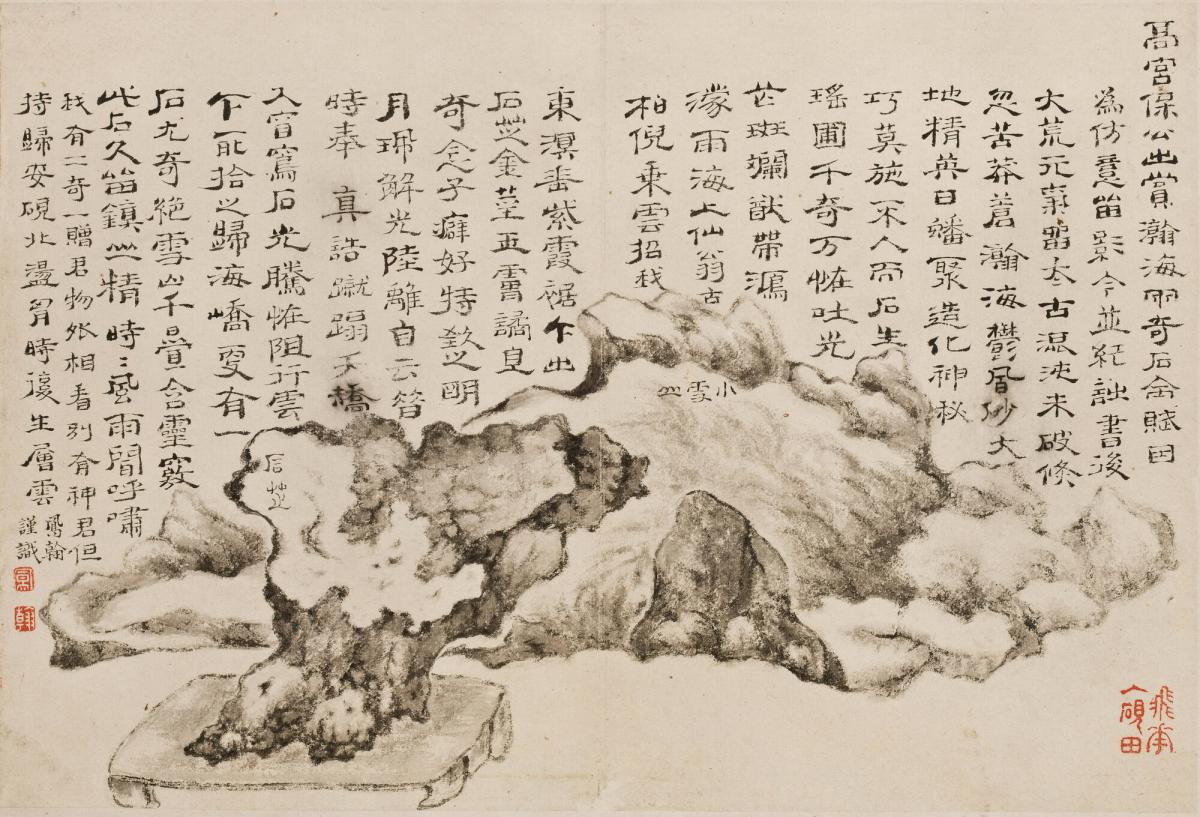 高宮保公出賞瀚海兩奇石命賦因
為仿意留影今並紀詘書後
大荒元氣留太古混沌未破倏
忽苦莽蒼瀚海鬱風砂大
地精英日蟠聚造化神秘
巧莫施不人而石生
瑤圃千奇万恠吐光
芒斑斕猷帶鴻
濛雨海上仙翁古
柏倪乘雲招我
東溟垂紫霞裾乍出
石芝金莖玉露譎見
奇念子癖好特欵之明
月珮解光陸離自云昔
時奉真誥蹴蹋天橋
入窅窱石光騰恠阻行雲
乍前拾之歸海嶠更有一
石尤奇絕雪山千疊含靈竅
此石久留鎮山精時〻風雨聞呼嘯
我有二奇一贈君物外相看別有神君但
持歸安硯北盪胷時復生層雲
鳳翰
謹識
小雪山
石芝
高
翰
硯田